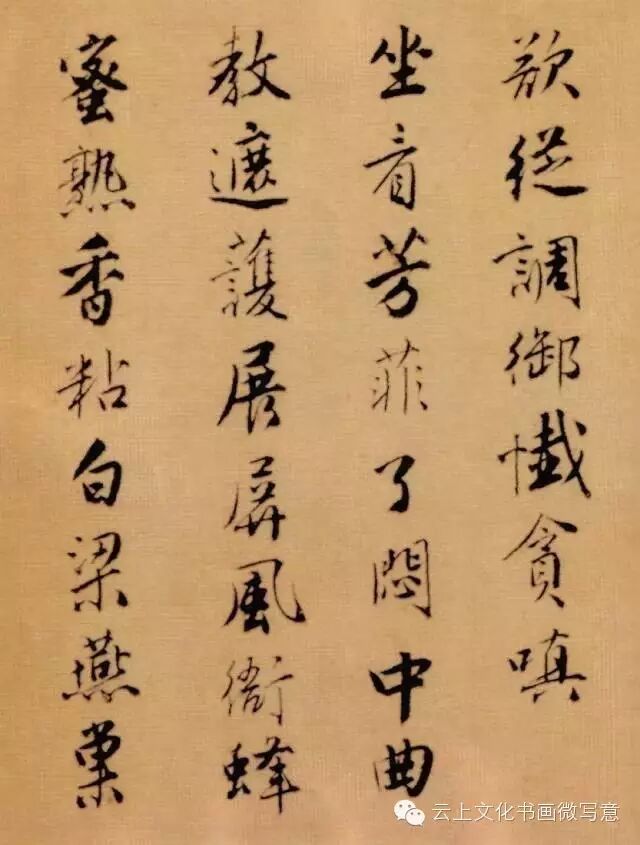 欲從調御懺貪嗔
坐看芳菲了悶中曲
教遮護展屏風衙蜂
蜜熟香粘白梁燕巢
云上文化书画微写意